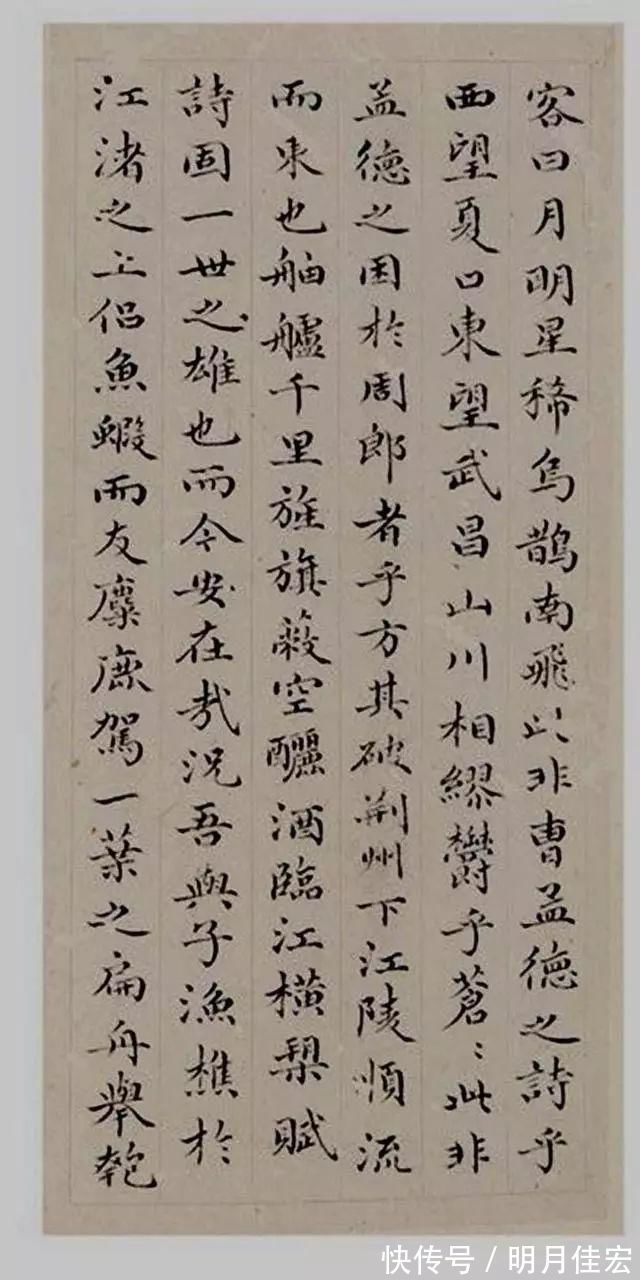 客曰月明星稀烏鵲南飛此非曹孟德之詩乎
西望夏口東望武昌山川相繆鬱乎蒼〻此非
孟德之困於周郎者乎方其破荆州下江陵順流
而東也舳艫千里旌旗蔽空釃酒臨江橫槊賦
詩固一世之雄也而今安在哉況吾與子漁樵於
江渚之上侶魚蝦而友麋鹿駕一葉之扁舟舉匏
快传号 / 明月佳宏